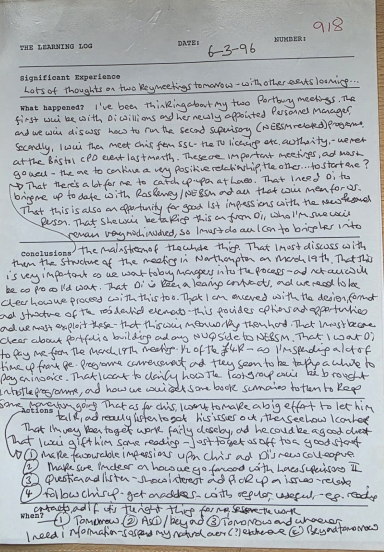 918
THE LEARNING LOG DATE: 6-3-96 NUMBER:
Significant Experience
Lots of thoughts on two key meetings tomorrow - with other events looming...
What happened? I've been thinking about my two Portbury meetings. The
first will be with Di Williams and her newly appointed Personnel Manager,
and we will discuss how to run the second supervisory (NEBSM related) programme.
Secondly, I will then meet Chris from SSC - the TV licencing etc. authority - we met
at the Bristol CPD event last month. These are important meetings, and must
go well - the one to continue a very positive relationship, the other... to start one?
That there's a lot for me to catch up on at Laceys. That I need Di to
bring me up to date with NEBSM and all that will mean for us.
That this is also an opportunity for good 1st impressions with the new
Person. That she will be taking this on from Di, who I'm sure will
remain very involved, so I must do all I can to bring her into
Conclusions the mainstream of the whole thing. That I must discuss with
them the structure of the meeting in Northampton on March 19th. That this
is very important as we want to buy managers into the process - and not all will
be as pro as I'd want. That Di is a learning contracts, and we need to be
clear how we proceed with this too. That I am enamoured with the design, format
and structure of the residential elements - this provides options and opportunities
and we must exploit these - that this will mean work beforehand. That I must become
clear about portfolio building and any NVQ side to NEBSM. That I want Di
to pay me from the March 19th meeting 1/2 of the £4K - as I'm spending a lot of
time up front pre-programme commencement and they seem to be taking a while to
pay an invoice. That I want to clarify how the last group could be brought
into the programme, and how we will get some book summaries to them to keep
some momentum going. That as for Chris, I want to make a big effort to let him
Actions talk, and really listen to get his issues out, then see how I can help
That I'm very keen to get work fairly close by, and he could be a good client
That I will gift him some reading - just to get us off to a good start
① Make favourable impressions upon Chris and Di's new colleague
② Make sure I'm clear on how we go forward with Laceys Supervisors II
③ Question and listen - show interest and pick up on issues - relate
④ Follow Chris up - get an address - with regular, useful - e.g. reading
contact, and if it's the right thing for me, some work
When? ① Tomorrow ② ASAP/beyond ③ Tomorrow and whenever
I need information - suspend my natural ... ④ Beyond tomorrow